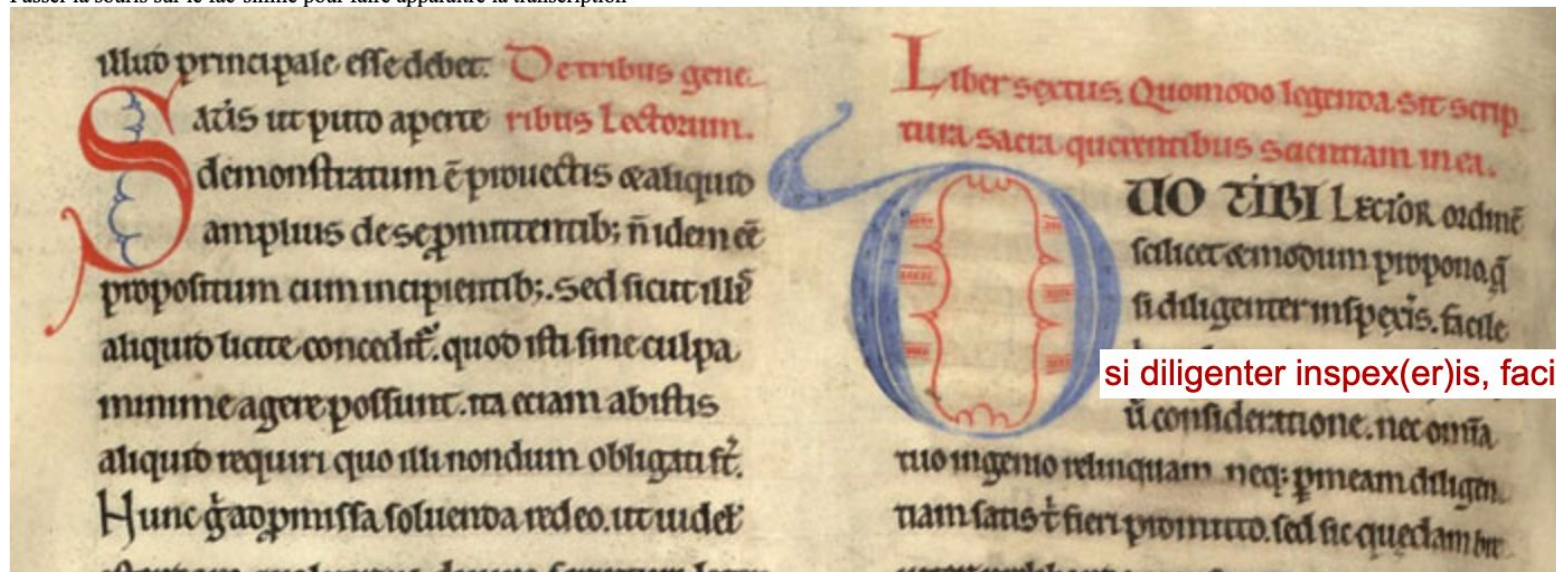 Passer la souris sur le fac-similé pour faire apparaître la transcription
illud principale esse debet. De tribus gene
Satis ut puto aperte ribus Lectorum.
demonstratum ē prouectis & aliquid
amplius de se ꝓmittentib; n̄ idem eē
propositum cum incipientib;. Sed sicut illis
aliquid licite conceditr̉. quod isti sine culpa
minime agere possunt. ita etiam ab istis
aliquid requiri quo illi nondum obligati st̉.
Hunc g̉ ad ꝓmissa soluenda redeo. ut uidel̉
Liber sextus. Quomodo legenda sit scrip
tura sacra querentibus scientiam in ea.
DUO TIBI LECTOR ordinē
scilicet & modum propono. q̄
si diligenter inspex̉is. facile
si diligenter inspex(er)is, faci
ū consideratione. nec om̄ia
tuo ingenio relinquam. neq; ꝑ meam diligen
tiam satis t̉ fieri promitto. sed sic quedam bre